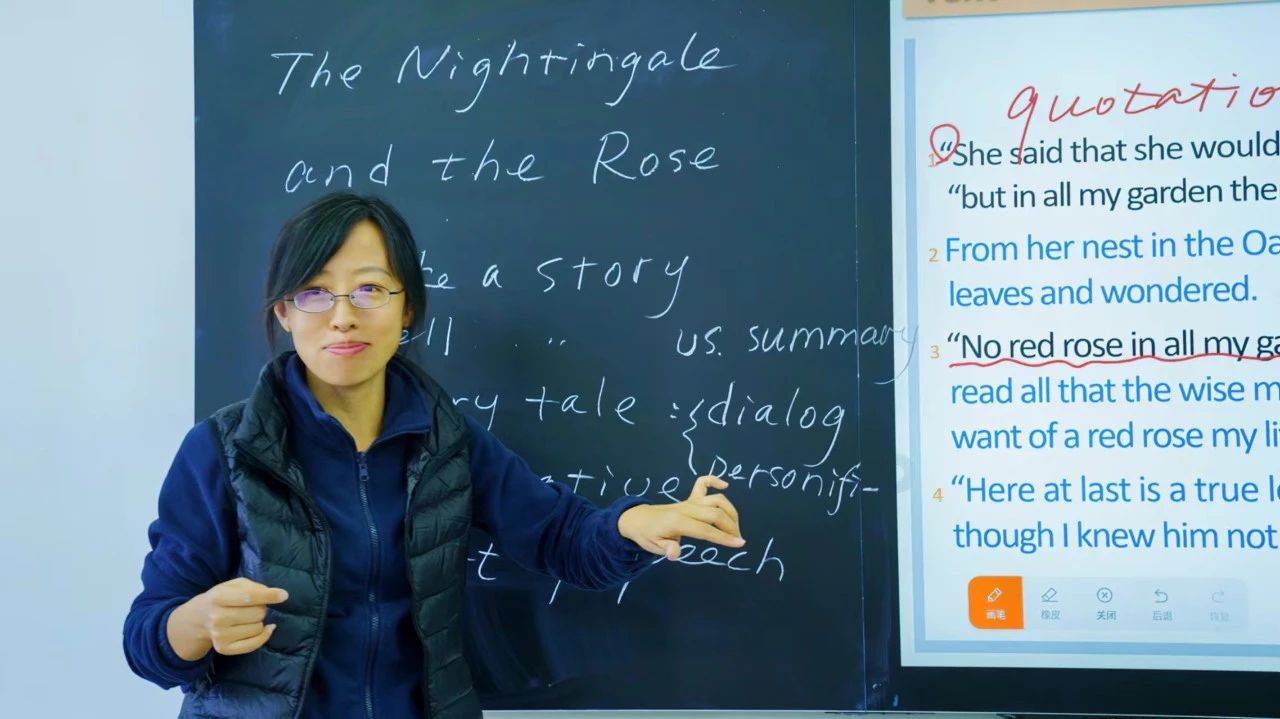 The Nightingale
and the Rose
a story
us. summary
tale : dialog
Personifi-
quotatio
1 "She said that she would
"but in all my garden the
2 From her nest in the Oa
leaves and wondered.
3 "No red rose in all my ga
read all that the wise m
want of a red rose my li
4 "Here at last is a true l
though I knew him not
画笔 橡皮 关闭 后退 恢复